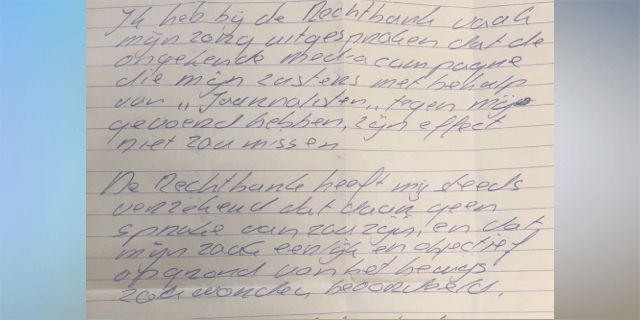 Ik heb bij de Rechtbank vaak
mijn zorg uitgesproken dat de
ongekende media campagne
die mijn zusters met behulp
van „Journalisten„ tegen mij
gevoerd hebben, zijn effect
niet zou missen
De Rechtbank heeft mij steeds
verzekerd dat daar geen
sprake van zou zijn, en dat
mijn zaak eerlijk en objectief
op grond van het bewijs
zou worden beoordeeld.